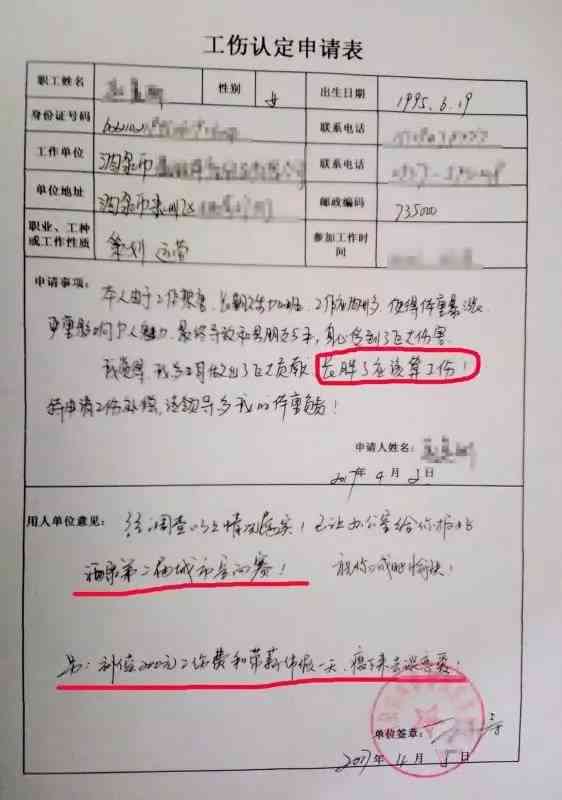 工伤认定申请表
职工姓名 性别 女 出生日期 1995.6.19
身份证号码 联系电话
工作单位 酒泉市 联系电话
单位地址 酒泉市肃州区 邮政编码 735000
职业、工种 策划 运营 参加工作时
或工作性质 间
申请事项：本人由于工作繁重，长期久坐加班，工作应酬多，使得体重暴涨，
严重影响个人魅力，最终导致和男朋友分手，身心受到了巨大伤害。
我觉得，我为公司做出了巨大贡献，长胖了应该算工伤！
特申请工伤补偿，请领导为我的体重负责！
申请人姓名：
2017年 4 月 2日
用人单位意见： 经调查以上情况属实！已让办公室给你报名
酒泉第二届城市 赛！ 祝你 愉快！
另：补偿2000元工伤费和带薪休假一天，瘦下来去谈恋爱！
单位签章：
2017年 4 月 5日